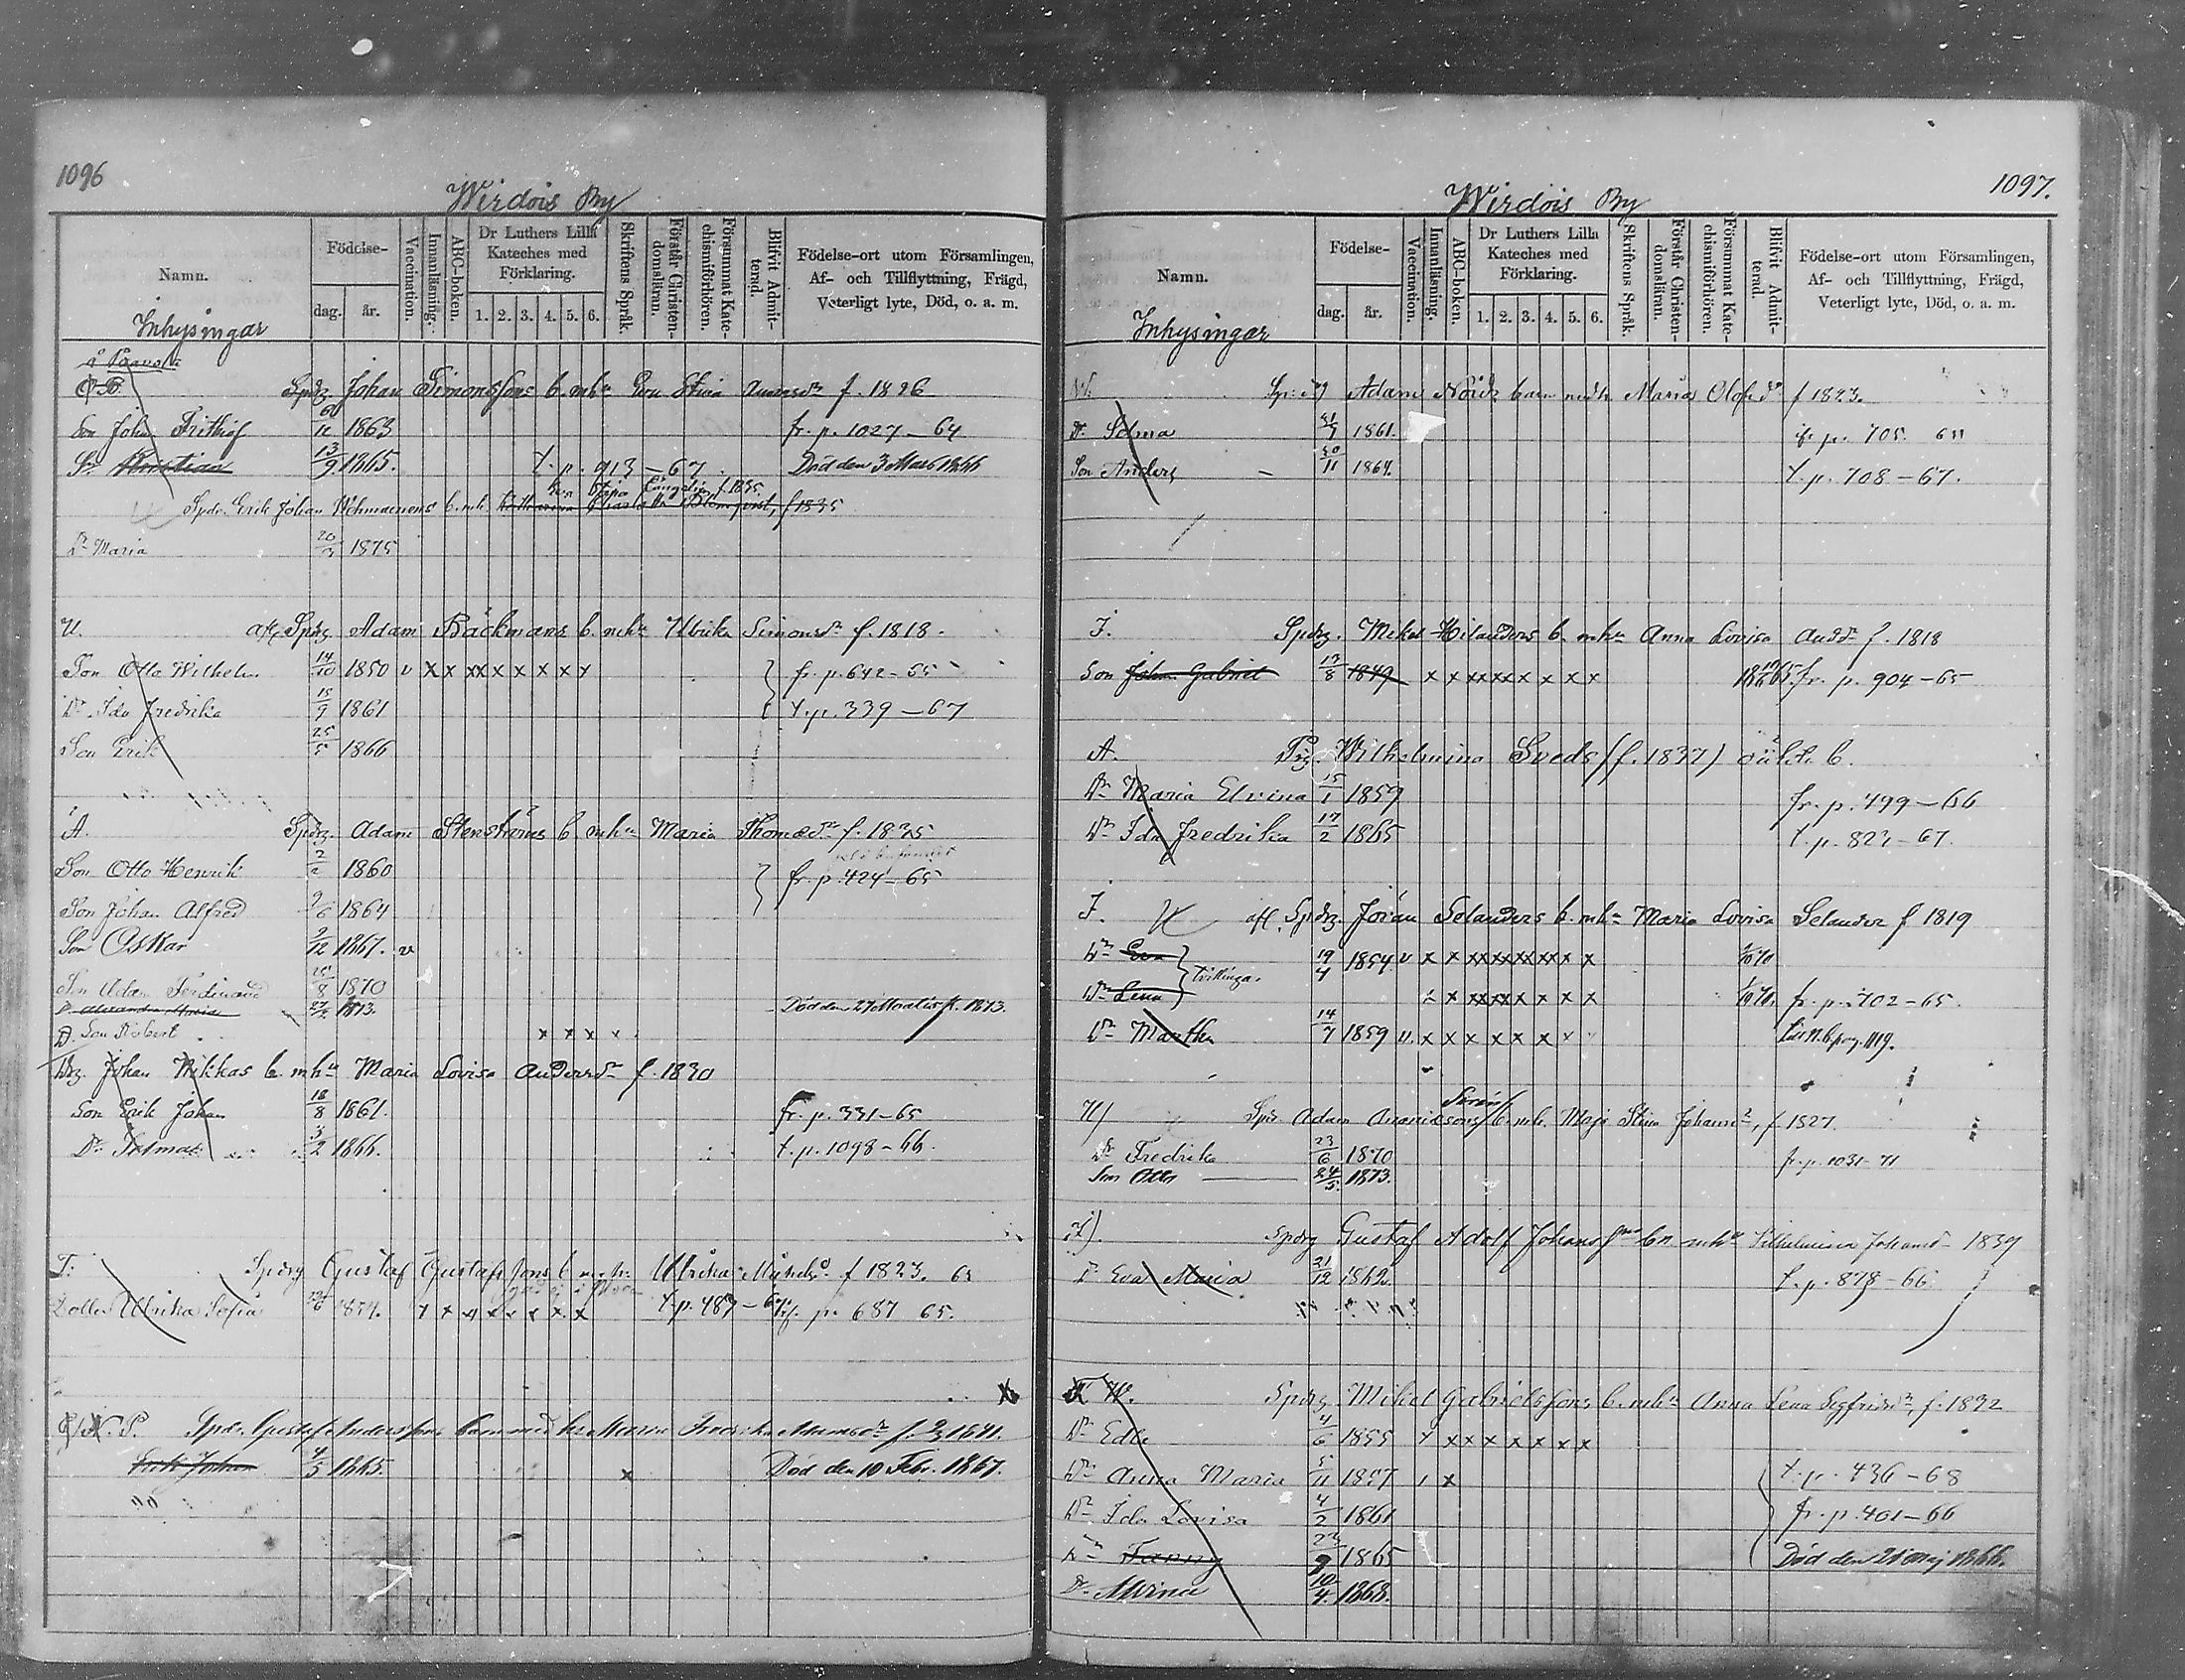 1096
Wirdois By
Namn.
Födelse-
dag. år.
Vaccination.
Innanläsning.
ABC-boken.
Dr Luthers Lilla Kateches med Förklaring.
1. 2. 3. 4. 5. 6.
Skriftens Språk.
Förstår Christendomsläran.
Försummat Katechismiförhören.
Blifvit Admitterad.
Födelse-ort utom Församlingen, Af- och Tillflyttning, Frägd, Veterligt lyte, Död, o. a. m.
Inhysingar
Spdrg. Johan Simonssons b. mhu Eva Stina f. 1826
Son John Frithiof 6/12 1863 fr. p. 1027-64
Sn Kristian 13/9 1865. t. p. 913-67. Död den 3 Mars 1866
Spdr. Erik Johan b. mh. f. 1835
Dr Maria 20/3 1875
U. afl. Spdrg. Adam Bäckmans b. mhu Ulrika Simonsdr f. 1818.
Son Otto Wilhelm 14/10 1850 v x x xx x x x x x fr. p. 642-65
Dr Ida Fredrika 15/9 1861 t. p. 339-67
Son Erik 25/5 1866
A. Spdrg. Adam Stenströms b. mhu Maria Thomasdr f. 1835
Son Otto Henrik 2/2 1860 fr. p. 424-65
Son Johan Alfred 9/6 1864
Son Oskar 9/12 1867. v
Son Adam Ferdinand 15/8 1870
D. Alexandra Maria 27/2 1873. Död den 27
D. Son Robert x x x x
Drg. Johan Wikkas b. mhu Maria Lovisa Andersdr f. 1830
Son Erik Johan 18/8 1861. fr. p. 331-65
Dr 3/2 1866. t. p. 1098-66.
T. Spdrg Gustaf Gustafssons b. m. h. Ulrika f. 1823.
Dotter Ulrika Sofia t. p. 487-67 fr. p. 687 65.
P. Spdr. Gustaf Anderssons barn med hu Maria 1841.
Erik Johan 4/5 1865. x Död den 10 Febr. 1867.
1097.
Wirdöis By
Namn.
Födelse-
dag. år.
Vaccination.
Innanläsning.
ABC-boken.
Dr Luthers Lilla Kateches med Förklaring.
1. 2. 3. 4. 5. 6.
Skriftens Språk.
Förstår Christendomsläran.
Försummat Katechismiförhören.
Blifvit Admitterad.
Födelse-ort utom Församlingen, Af- och Tillflyttning, Frägd, Veterligt lyte, Död, o. a. m.
Inhysingar
Adam barn med h. Maria Olofsdr f 1823.
Dr Selma 1861. fr p. 705.
Son Anders 30/11 1864. t. p. 708-67.
I. Spdrg. Mikel Hilanders b. mhu Anna Lovisa Andsdr f. 1818
Son Johan Gabriel 13/8 1849 x x xx xx x x x x fr. p. 904-65
A. Pig. Wilhelmina Sveds (f. 1837) oäkta b.
Dr Maria Elvina 15/1 1859 fr. p. 499-66
Dr Ida Fredrika 17/2 1865 t. p. 823-67.
I. afl. Spdrg. Jöran Selanders b. mhu Maria Lovisa Selander f 1819
Dr Eva } tvillingar 19/4 1854 v x x xx xx xx x x x
Dr Lena x x xx xx x x x x fr. p. 702-65.
Dr Martha 14/7 1859 v. x x x x x x x
U) Spdr. Adam b. mh. Maja Stina Johansdr, f. 1827.
Dr Fredrika 23/6 1870 fr. p. 1031-71
Son Otto 24/5. 1873.
Spdrg Gustaf Adolf Johanssons bn mhu Wilhelmina Johansd 1839
Dr Eva Maria 31/12 1862. t. p. 878-66
W. Spdrg. Mikel Gabrielssons b. mhu Anna Lena Sigfridsdr, f. 1832
Dr Edla 4/6 1855 x x x x x x x
Dr Anna Maria 5/11 1857 x t. p. 436-68
Dr Ida Lovisa 4/2 1861 fr. p. 401-66
Dr Fanny 1865 Död den 21 Maj 1866.
Dr Alvina 10/4. 1868.